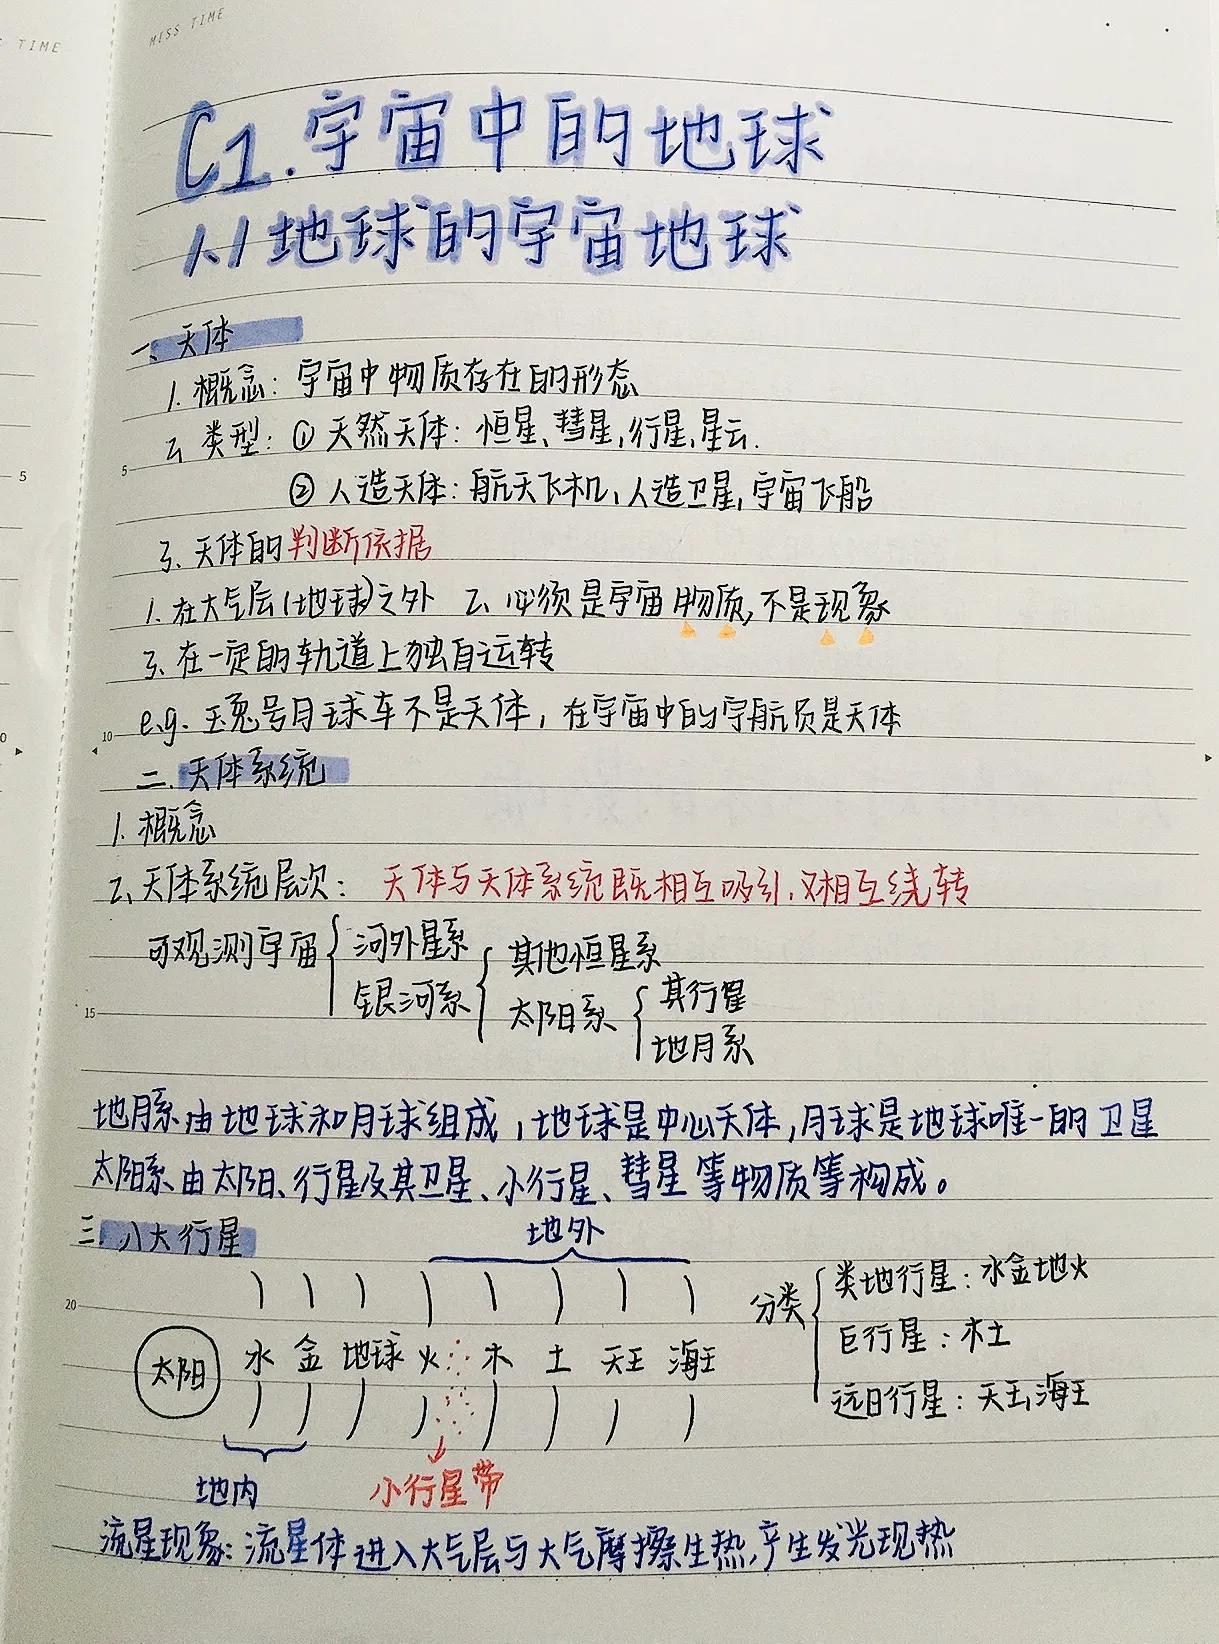 TIME
MISS TIME
C1.宇宙中的地球
1.1地球的宇宙地球
一、天体
1.概念：宇宙中物质存在的形态
2.类型：①天然天体：恒星、彗星,行星,星云.
5
5
②人造天体：航天飞机、人造卫星,宇宙飞船
3、天体的判断依据
1.在大气层(地球)之外 2.必须是宇宙物质,不是现象
3.在一定的轨道上独自运转
e.g. 玉兔号月球车不是天体，在宇宙中的宇航员是天体
0
10
二.天体系统
1.概念
2、天体系统层次：天体与天体系统既相互吸引,又相互绕转
可观测宇宙
河外星系
银河系
其他恒星系
太阳系
其行星
地月系
15
地月系由地球和月球组成,地球是中心天体,月球是地球唯一的卫星
太阳系由太阳、行星及其卫星、小行星、彗星等物质等构成。
三.八大行星
地外
20
太阳 水 金 地球 火 木 土 天王 海王
地内
小行星带
分类
类地行星：水金地火
巨行星：木土
远日行星：天王,海王
流星现象：流星体进入大气层与大气摩擦生热,产生发光现热